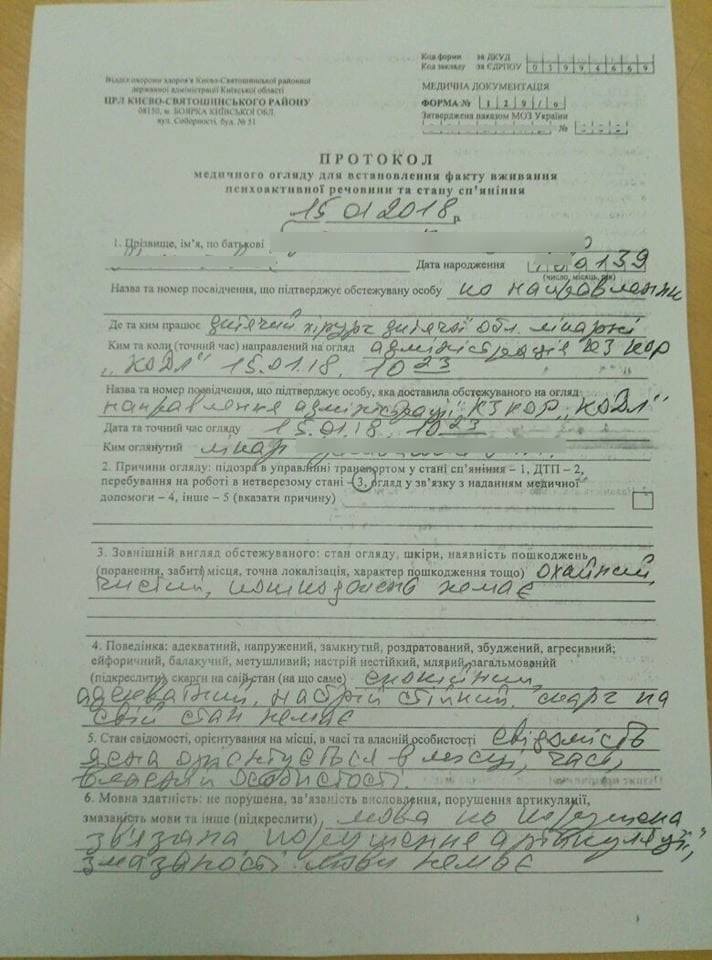 Код форми за ДКУД
Код закладу за ЄДРПОУ 03994669
Відділ охорони здоров'я Києво-Святошинської районної
державної адміністрації Київської області
ЦРЛ КИЄВО-СВЯТОШИНСЬКОГО РАЙОНУ
08150, м. БОЯРКА КИЇВСЬКОЇ ОБЛ.
вул. Соборності, буд. № 51
МЕДИЧНА ДОКУМЕНТАЦІЯ
ФОРМА № 129/о
Затверджена наказом МОЗ України
№
ПРОТОКОЛ
медичного огляду для встановлення факту вживання
психоактивної речовини та стану сп'яніння
15 01 2018 р.
1. Прізвище, ім'я, по батькові
Дата народження
(число, місяць, рік)
Назва та номер посвідчення, що підтверджує обстежувану особу по направленню
Де та ким працює дитячий хірург дитячої обл. лікарні
Ким та коли (точний час) направлений на огляд адміністрація КЗ КОР
"КОДЛ" 15.01.18, 10 23
Назва та номер посвідчення, що підтверджує особу, яка доставила обстежуваного на огляд
направлення адміністрації КЗ КОР "КОДЛ"
Дата та точний час огляду 15.01.18, 10 23
Ким оглянутий лікар
2. Причини огляду: підозра в управлінні транспортом у стані сп'яніння – 1, ДТП – 2,
перебування на роботі в нетверезому стані – 3, огляд у зв'язку з наданням медичної
допомоги – 4, інше – 5 (вказати причину)
3. Зовнішній вигляд обстежуваного: стан огляду, шкіри, наявність пошкоджень
(поранення, забиті місця, точна локалізація, характер пошкодження тощо) охайний,
чистий, пошкоджень немає
4. Поведінка: адекватний, напружений, замкнутий, роздратований, збуджений, агресивний;
ейфоричний, балакучий, метушливий; настрій нестійкий, млявий, загальмований
(підкреслити), скарги на свій стан (на що саме) спокійний,
адекватний, настрій стійкий, скарг на
свій стан немає
5. Стан свідомості, орієнтування на місці, в часі та власній особистості свідомість
ясна орієнтується в місці, часі,
власній особистості.
6. Мовна здатність: не порушена, зв'язаність висловлення, порушення артикуляції,
змазаність мови та інше (підкреслити) мова не порушена
зв'язана порушення артикуляції,
змазаності мови немає